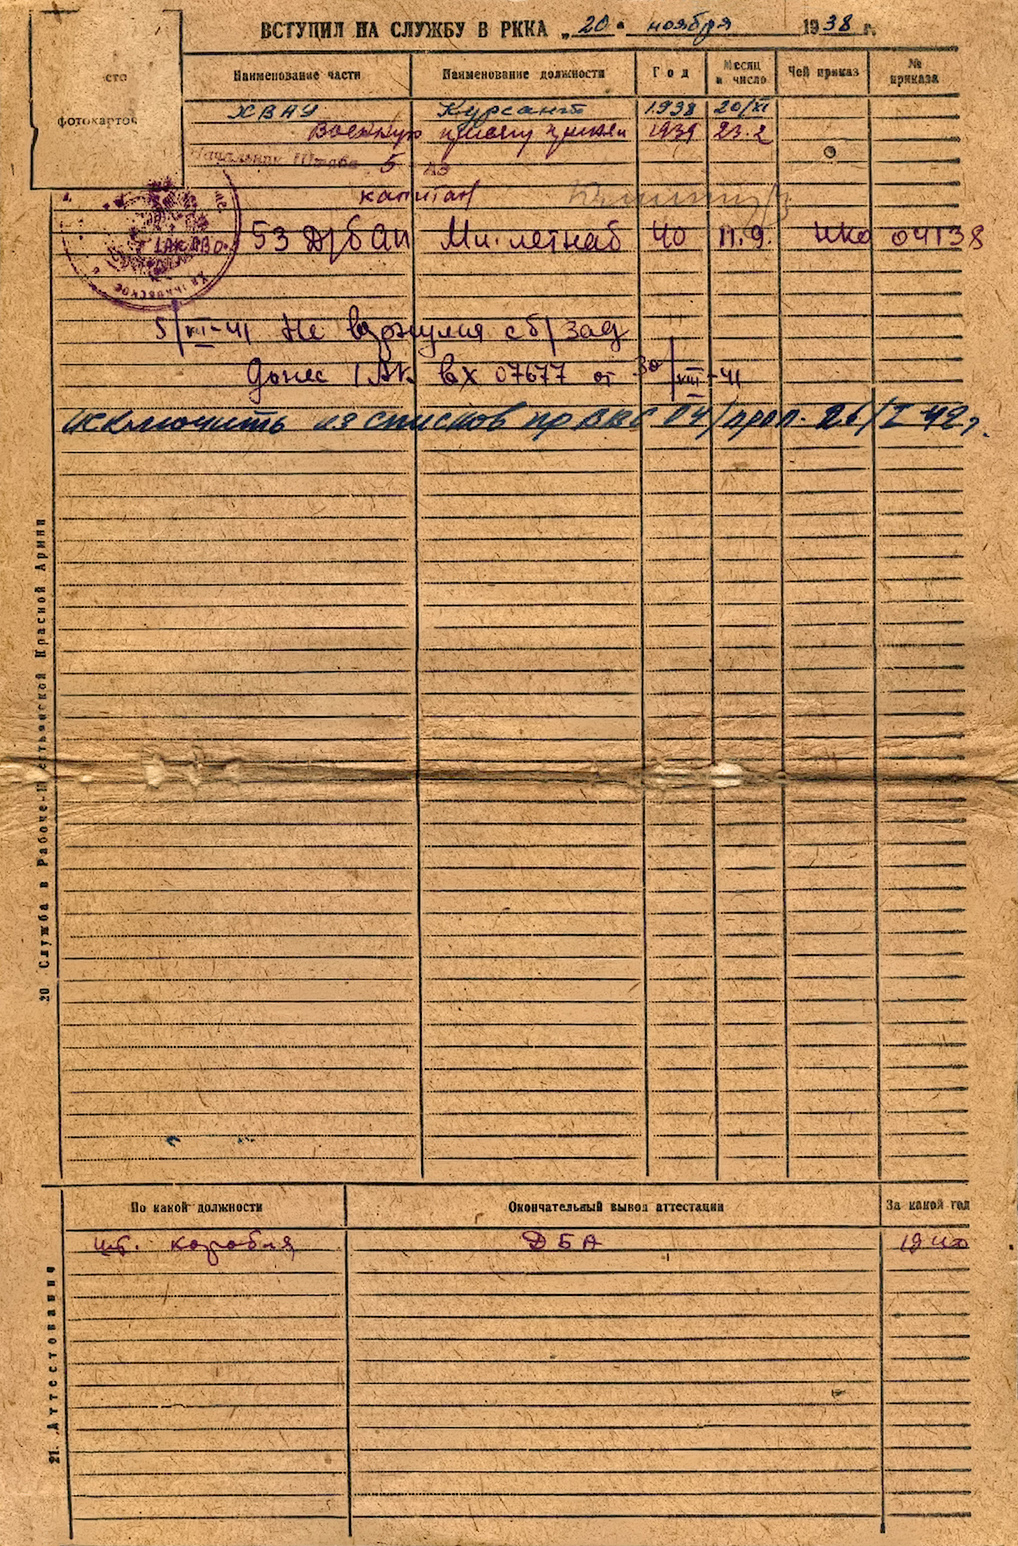 ВСТУПИЛ НА СЛУЖБУ В РККА „20" ноября 1938 г.
сто
фотокарточ
Наименование части Наименование должности Год Месяц и число Чей приказ № приказа
ХВАУ Курсант 1938 20/XI
Военную присягу принял 1939 23.2
Начальник Штаба 5 АЭ
капитан
53 ДБАП Мл. летнаб 40 11.9. НКО 04138
5/VIII-41 Не вернулся с б/зад
Донес 1 Ак. вх 07677 от 30/VIII-41
исключить из списков пр ВВС 04/проп. 26/I 42 г.
20 Служба в Рабоче-Крестьянской Красной Армии
По какой должности Окончательный вывод аттестации За какой год
шт. корабля ДБА 1940
21. Аттестование